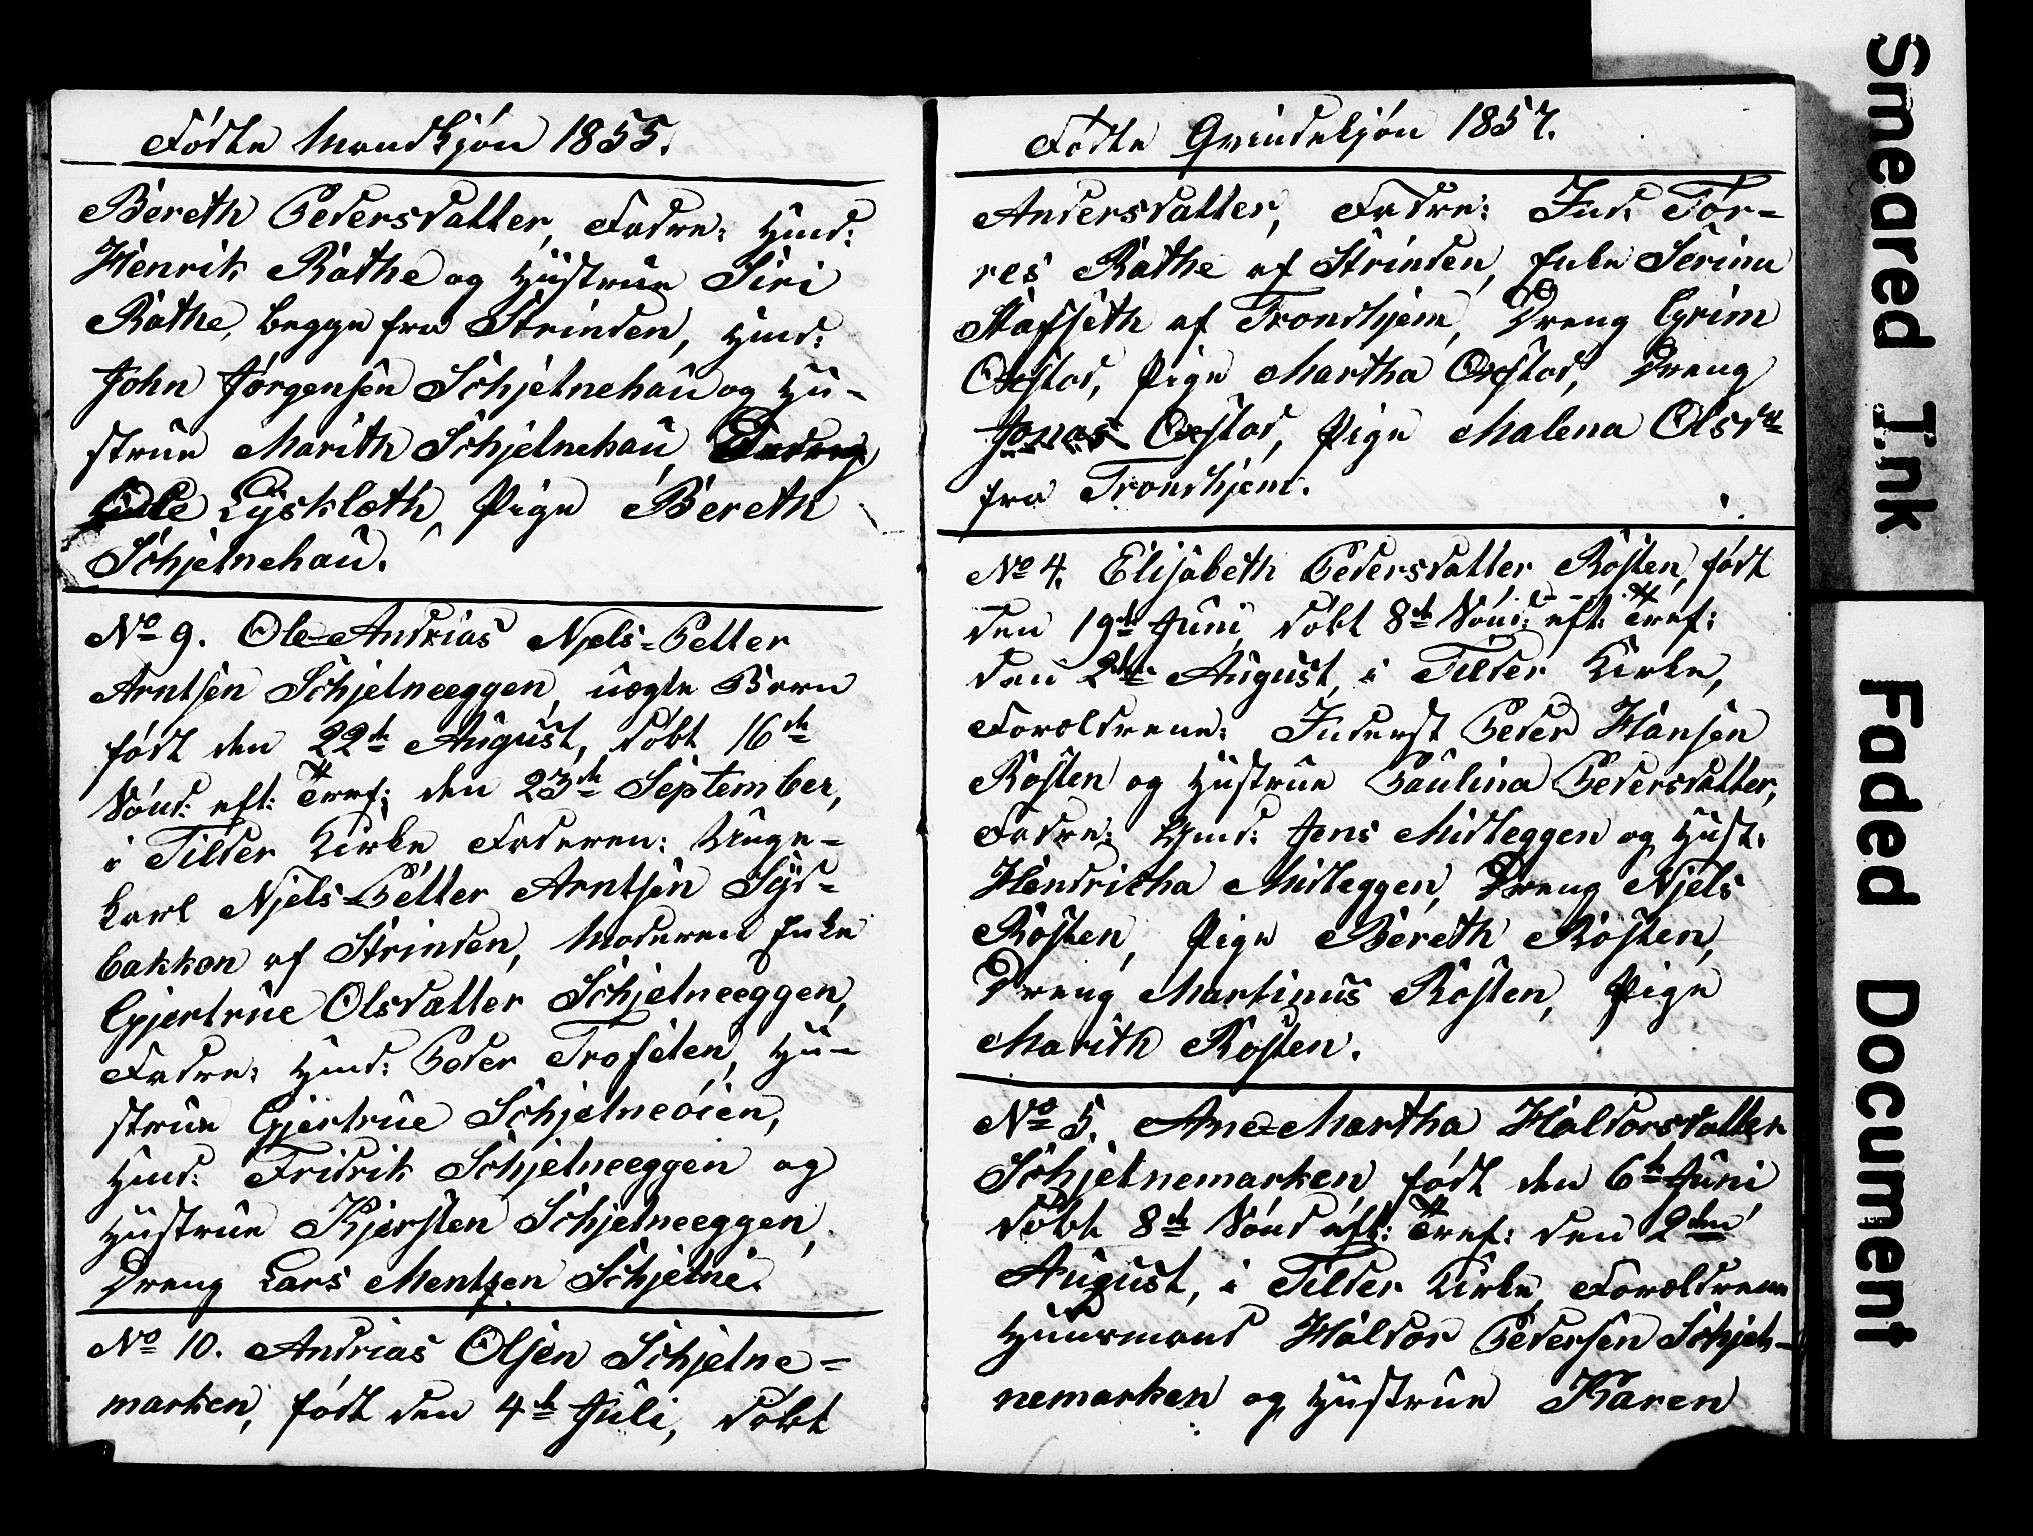 Fødte Mandkjøn 1855.
Bereth Pedersdatter, Fadre: Hmd:
Henrik Rathe og Hustrue Siri
Rathe, begge fra Strinden, Hmd:
John Jørgensen Schjelnehau og Hu-
strue Marith Schjelnehau,
Ole Lyskloth, Pige Bereth
Schjelnehau.
No 9. Ole-Andrias Njels-Petter
Arntsen Schjelneeggen, uægte Barn
født den 22de August, døbt 16de
Sønd: eft: Tref: den 23de September,
i Tilder Kirke Faderen: Unge-
karl Njels-Petter Arntsen Syd-
bakken af Strinden, Moderen Enke
Gjertrue Olsdatter Schjelneeggen,
Fadre: Hmd: Peder Trosdlen, Hu-
strue Gjertrue Schjelneøien,
Hmd: Fridrik Schjelneeggen og
Hustrue Kjersten Schjelneeggen,
Dreng Lars Mentzen Schjelne.
No 10. Andrias Olsen Schjelne-
marken, født den 4de Juli, døbt
Fødte Qvindekjøn 1857.
Andersdatter, Fadre: Ind: Tør-
res Rathe af Strinden, Enke Serina
Stafseth af Trondhjem, Dreng Grim
Oxstad, Pige Martha Oxstad, Dreng
Jonas Oxstad, Pige Malena Olsdr
fra Trondhjem.
No 4. Elisabeth Pedersdatter Rosten, født
den 19de Juni, døbt 8de Sønd: eft: Tref:
den 2den August, i Tilder Kirke,
Forældrene: Inderst Peder Hansen
Rosten og Hustrue Paulina Pedersdatter,
Fadre: Hmd: Jens Midteggen og Hust:
Hendricha Midteggen, Dreng Njels
Rosten, Pige Bereth Rosten,
Dreng Martinus Rosten, Pige
Marith Rosten.
No 5. Ane-Martha Haldorsdatter
Schjelnemarken født den 6te Juni
døbt 8de Sønd eft: Tref: den 2den
August, i Tilder Kirke, Forældrene
Huusmand Haldor Pedersen Schjel-
nemarken og Hustrue Karen
Smeared Ink
Faded Document